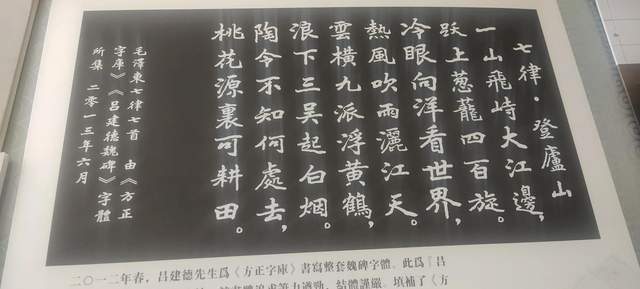 七律·登廬山
一山飛峙大江邊，
跃上葱蘢四百旋。
冷眼向洋看世界，
熱風吹雨灑江天。
雲橫九派浮黄鶴，
浪下三吴起白烟。
陶令不知何處去，
桃花源裏可耕田。
毛澤東七律七首 由《方正
字庫》《吕建德魏碑》字體
所集 二零一三年六月
二〇一二年春，吕建德先生爲《方正字庫》書寫整套魏碑字體。此爲『吕
結體謹嚴。填補了《方